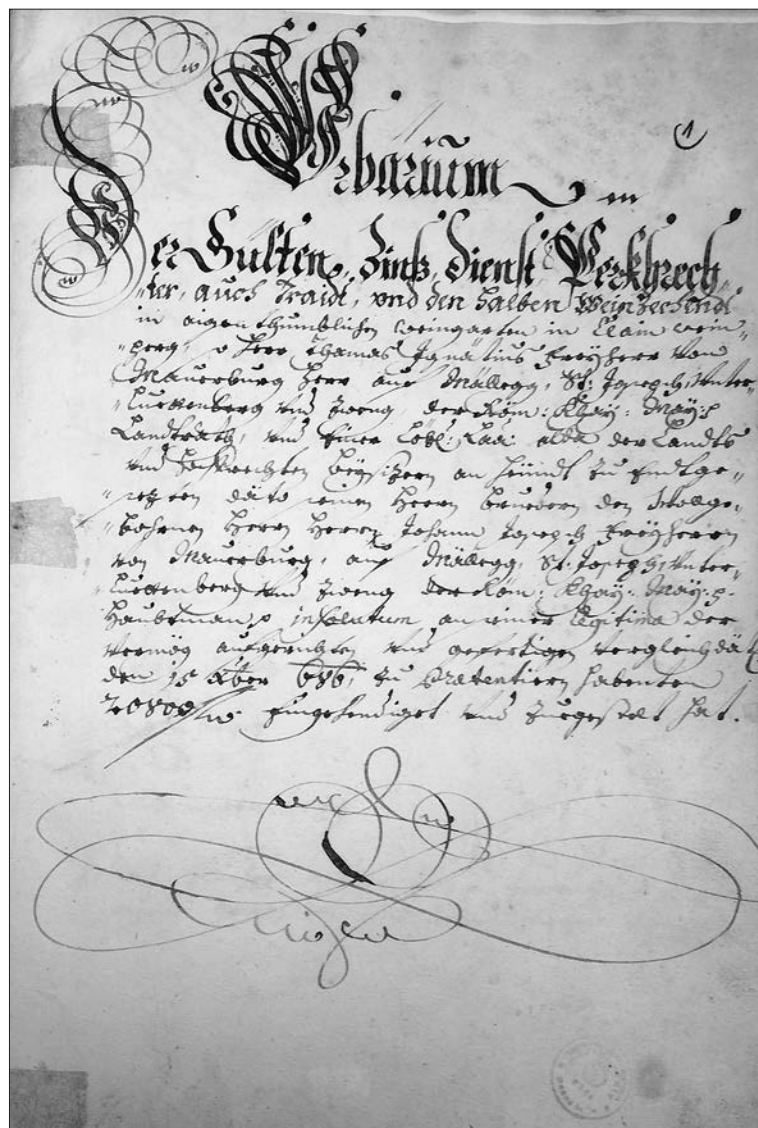 1
Urbarium
Der Gülten, Zinß, dienst Perkhrech„
„ter, auch Traidt, vnd den halben Weinzechendt
in aigenthumblichen weingarten in Clain wein„
„perg, so Herr Thamas Ignatius Freyherr von
Maurburg Herr auf Mällegg, St: Joseph, Vnter„
„Luettenberg vnd Zweng, der Röm: Khay: May: p
Landtrath, vnd Einer Löbl: Laa: alda der Landts
vnd Hoffrechten beysizern an heündt zu Endtge„
„sezten dato seinen Herrn bruedern den Wollge„
„bohrnen Herrn Herrn Johann Joseph Freyherrn
von Maurburg, auf Mällegg, St: Joseph, Vnter„
„Luettenberg vnd Zweng der Röm: Khay: May: p.
Haubtman p in solutum an seiner legitima der
vermög aufgerichten vnd geferttigen vergleich dat
den 15 Xber 686, zu Praetentiern habenten
20800 Eingehendiget vnd zuegestelt hat.